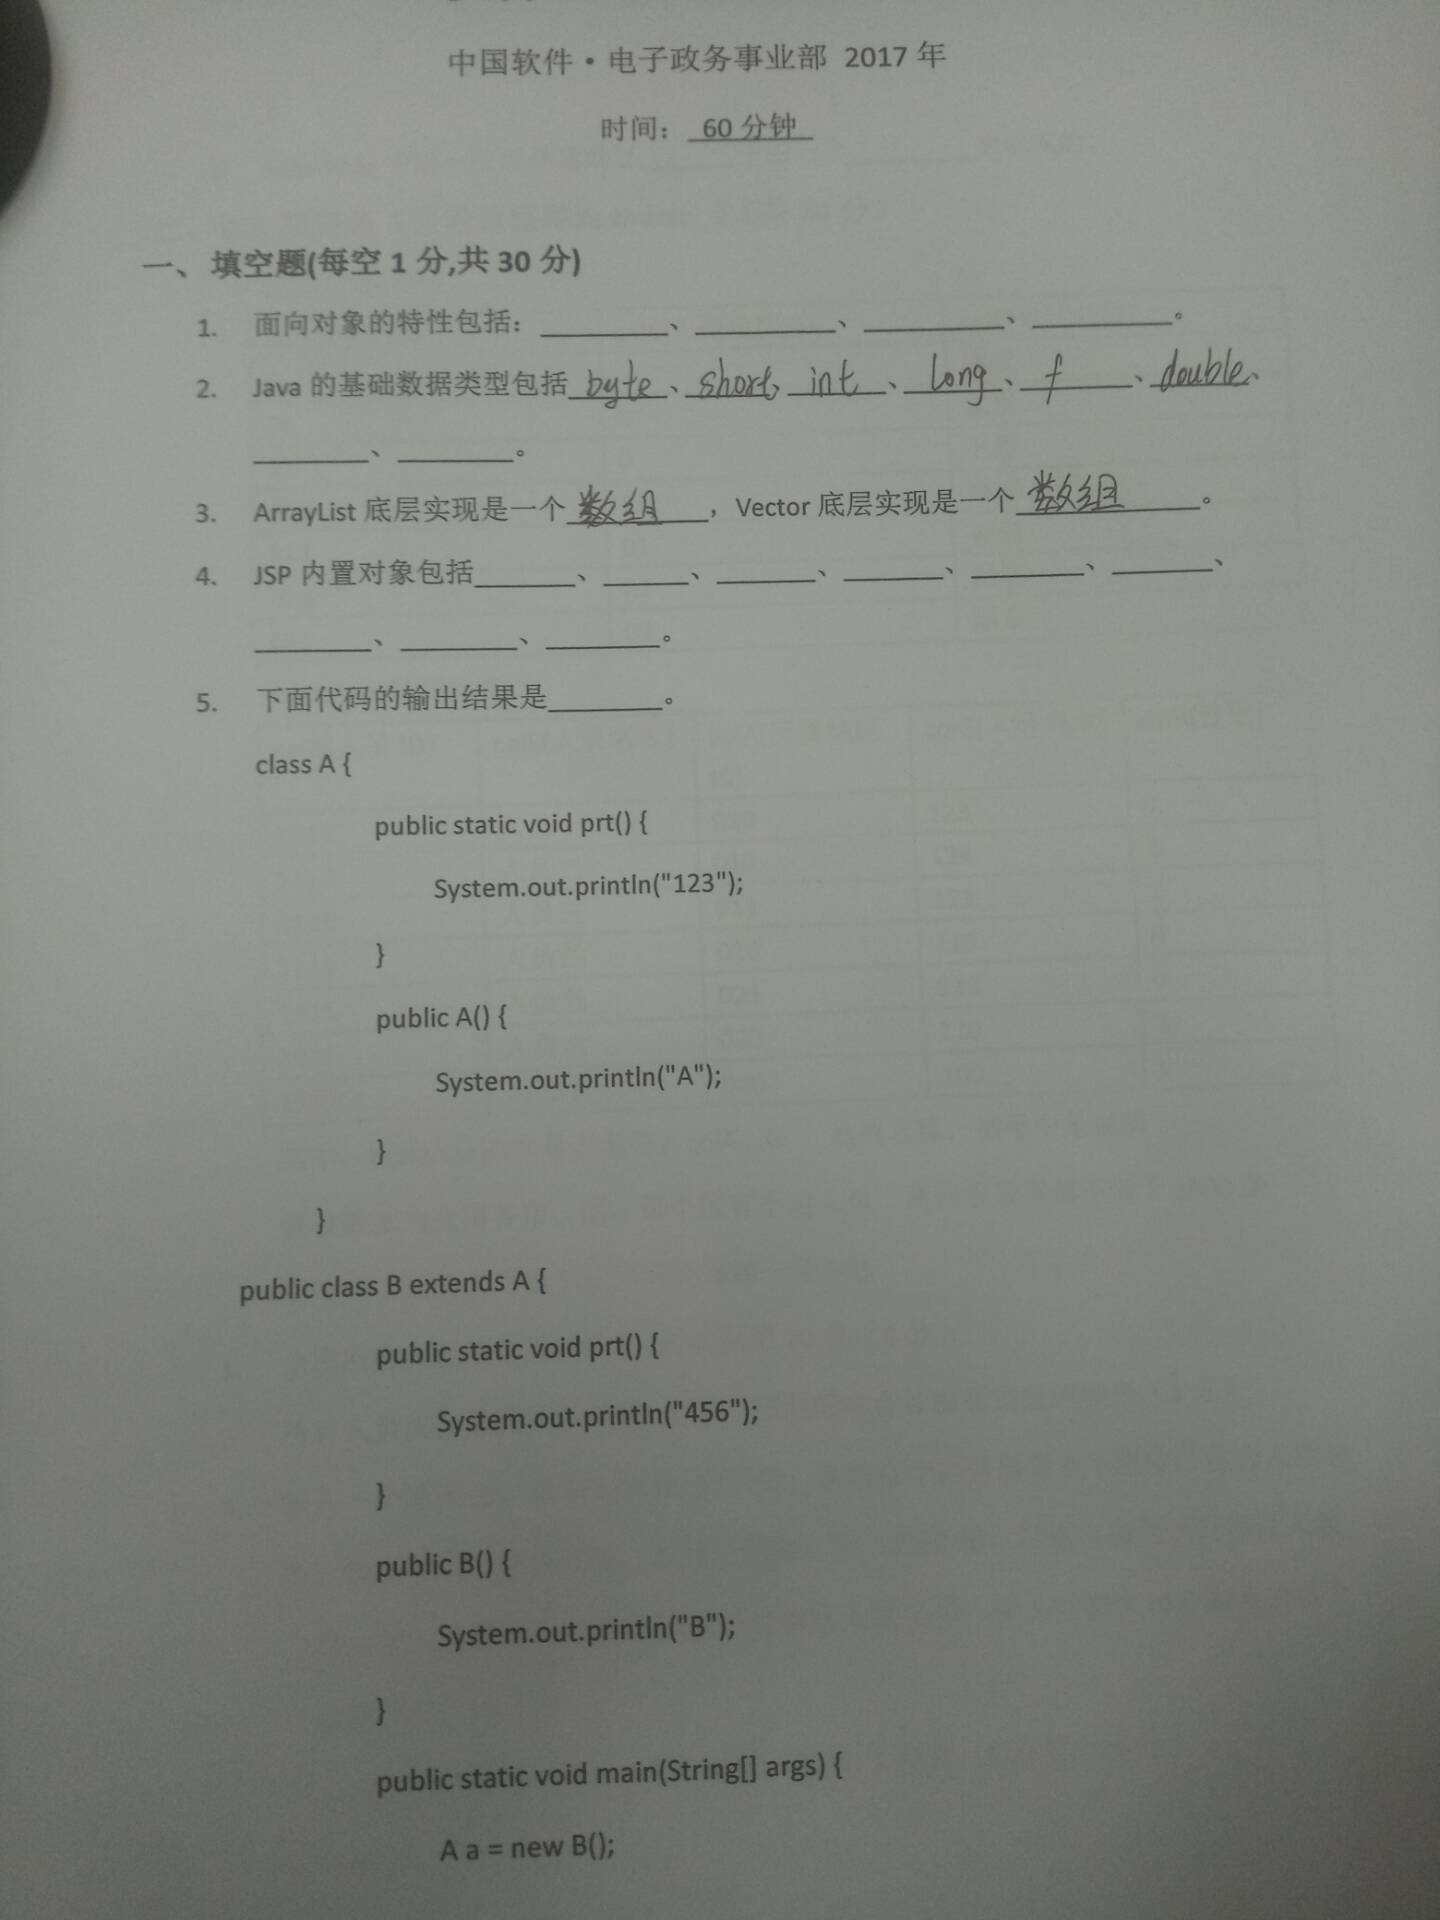 中国软件·电子政务事业部 2017 年
时间： 60 分钟
一、填空题(每空 1 分,共 30 分)
1. 面向对象的特性包括：________、________、________、________。
2. Java 的基础数据类型包括 byte、short、int、long、f、double、
________、________。
3. ArrayList 底层实现是一个 数组，Vector 底层实现是一个 数组。
4. JSP 内置对象包括________、________、________、________、________、________、
________、________、________。
5. 下面代码的输出结果是________。
class A {
public static void prt() {
System.out.println("123");
}
public A() {
System.out.println("A");
}
}
public class B extends A {
public static void prt() {
System.out.println("456");
}
public B() {
System.out.println("B");
}
public static void main(String[] args) {
A a = new B();